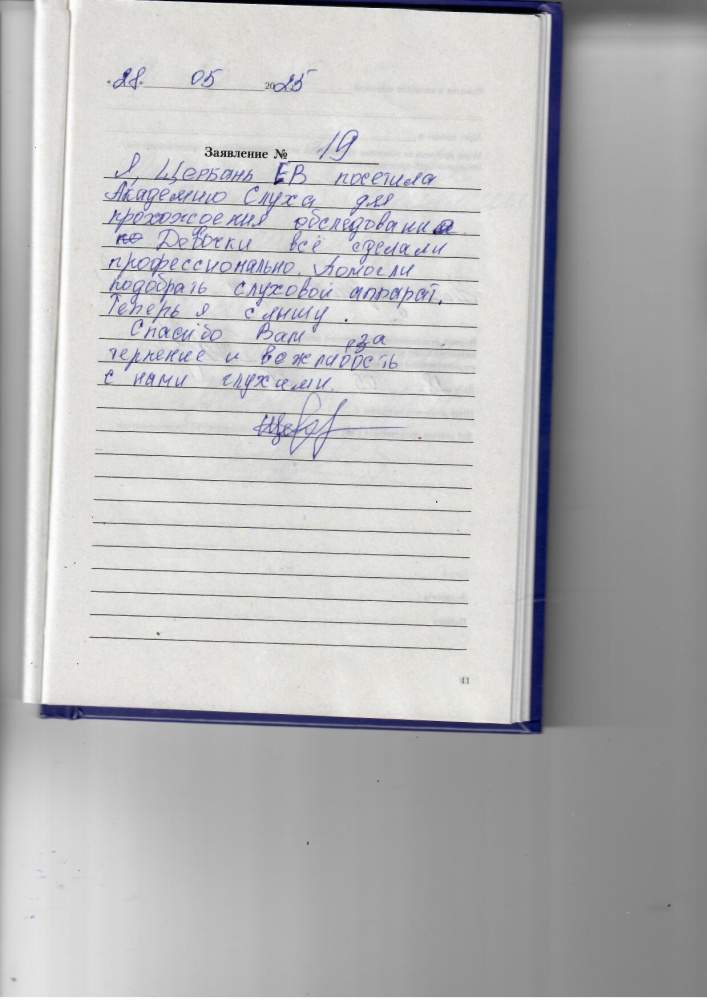 «28» 05 2025
Заявление № 19
Я, Щербань ЕВ посетила
Академию Слуха для
прохождения обследования
Девочки всё сделали
профессионально. Помогли
подобрать слуховой аппарат.
Теперь я слышу.
Спасибо Вам за
терпение и вежливость
с нами глухими.
41